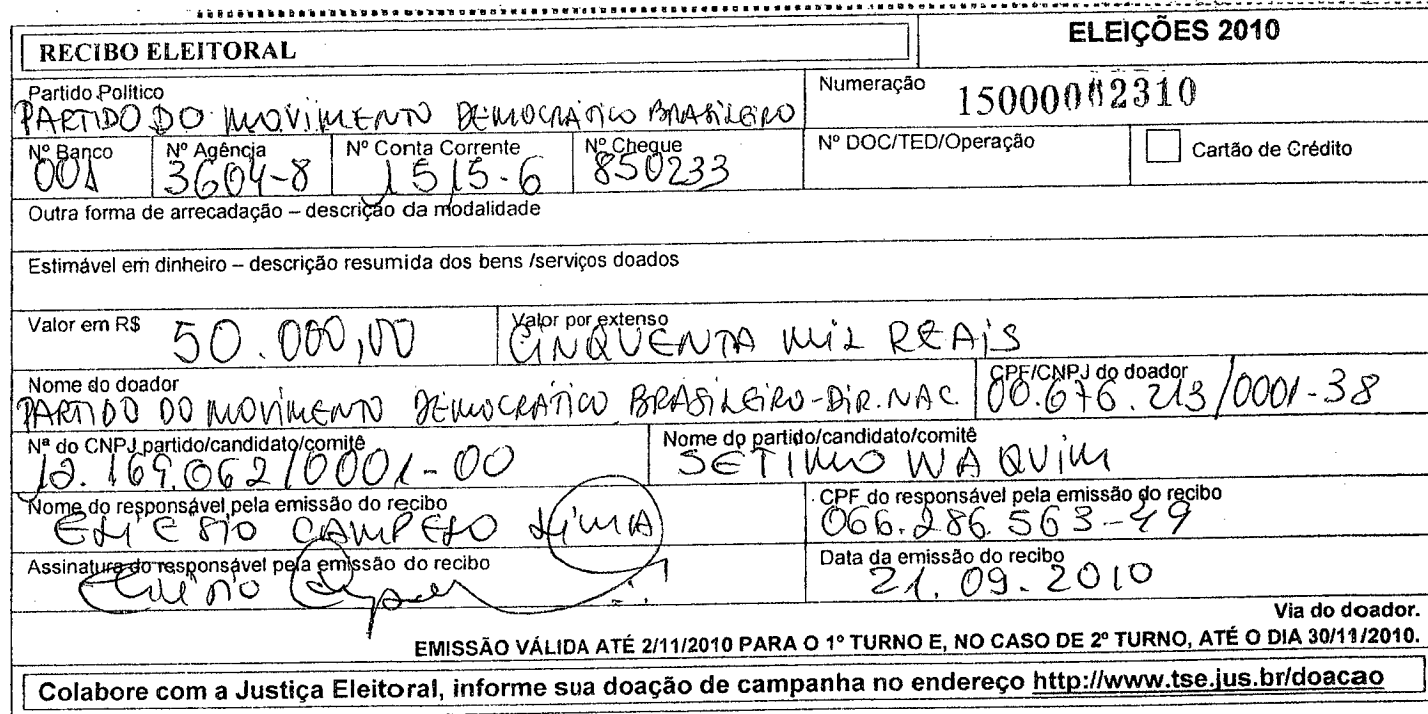 RECIBO ELEITORAL
ELEIÇÕES 2010
Partido Político
PARTIDO DO MOVIMENTO DEMOCRÁTICO BRASILEIRO
Numeração 15000002310
Nº Banco 001
Nº Agência 3604-8
Nº Conta Corrente 1515-6
Nº Cheque 850233
Nº DOC/TED/Operação
Cartão de Crédito
Outra forma de arrecadação – descrição da modalidade
Estimável em dinheiro – descrição resumida dos bens /serviços doados
Valor em R$ 50.000,00
Valor por extenso
CINQUENTA MIL REAIS
Nome do doador
PARTIDO DO MOVIMENTO DEMOCRÁTICO BRASILEIRO-DIR.NAC.
CPF/CNPJ do doador
00.676.213/0001-38
Nª do CNPJ partido/candidato/comitê
12.169.062/0001-00
Nome do partido/candidato/comitê
SETIMO WAQUIM
Nome do responsável pela emissão do recibo
CAMPELO LIMA
CPF do responsável pela emissão do recibo
066.286.563-49
Assinatura do responsável pela emissão do recibo
Data da emissão do recibo
21.09.2010
Via do doador.
EMISSÃO VÁLIDA ATÉ 2/11/2010 PARA O 1º TURNO E, NO CASO DE 2º TURNO, ATÉ O DIA 30/11/2010.
Colabore com a Justiça Eleitoral, informe sua doação de campanha no endereço http://www.tse.jus.br/doacao